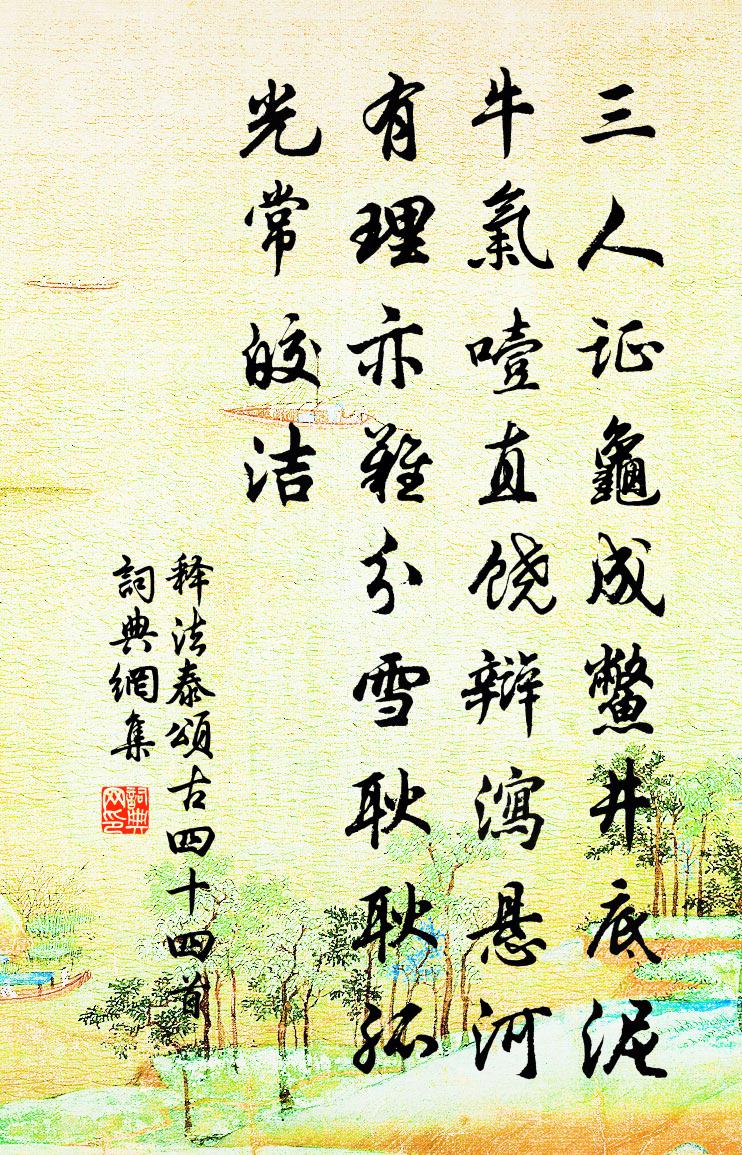 三人证龜成鱉井底泥
牛氣噎直饶辯瀉悬河
有理亦難分雪耿耿孤
光常皎洁
释法泰頌古四十四首
詞典網集
詞典
网印